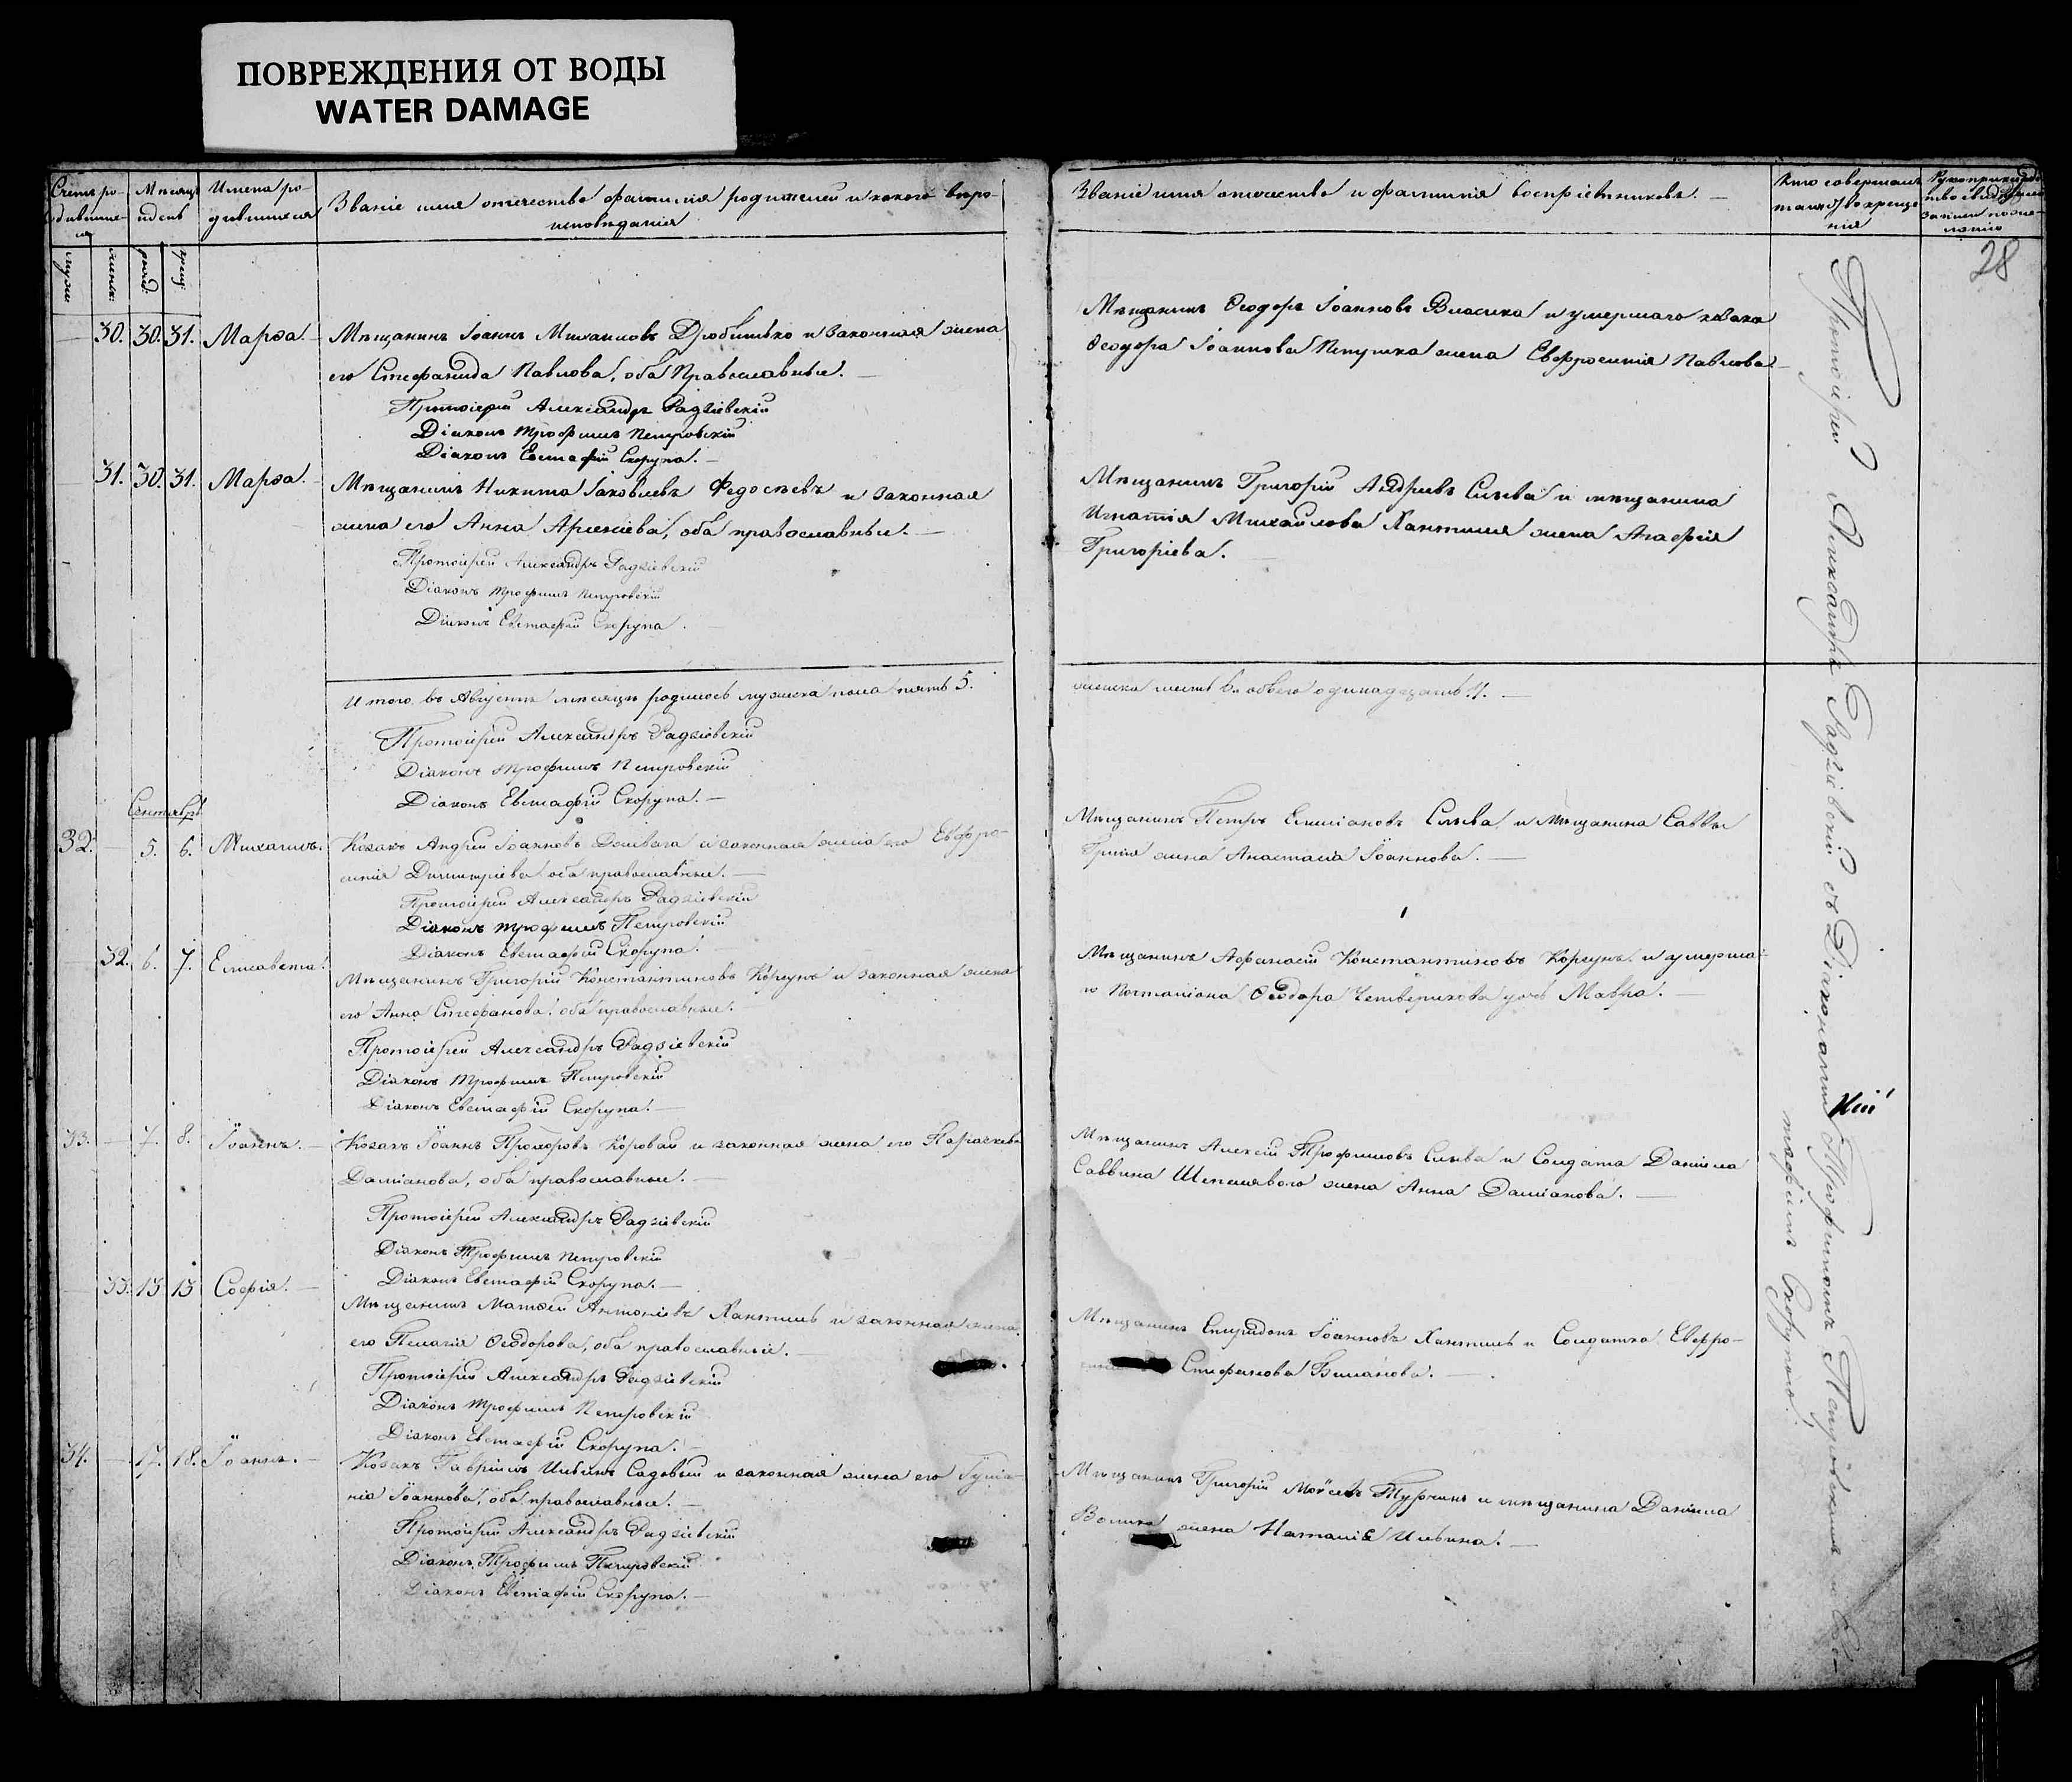 ПОВРЕЖДЕНИЯ ОТ ВОДЫ
WATER DAMAGE
Счетъ ро-
дившихся
Мѣсяцъ
и день
Имена ро-
дившихся
Званіе имя отечество фамилія родителей и какого вѣро-
исповѣданія
Званіе имя отечество и фамилія воспріемниковъ. —
Кто совершалъ
таинство креще-
нія
28
30. 30. 31. Марѳа. Мѣщанинъ Іоаннъ Михаиловъ Дробитько и законная жена
его Стефанида Павлова, оба Православные. —
Протоіерей Александръ Радзіевскій
Діаконъ Трофимъ Петровскій
Діаконъ Евстафій Скорупа. —
Мѣщанинъ Ѳеодоръ Іоанновъ Власика и умершаго козака
Ѳеодора Іоаннова жена Евфросинія Павлова —
31. 30. 31. Марѳа. Мѣщанинъ Никита Іаковлевъ Федосѣевъ и законная
жена его Анна Арсеніева, оба православные. —
Протоіерей Александръ Радзіевскій
Діаконъ Трофимъ Петровскій
Діаконъ Евстафій Скорупа. —
Мѣщанинъ Григорій Андреевъ Слѣва и мѣщанина
Игнатія Михайлова Хантиля жена Агафія
Григоріева. —
Итого въ Августѣ мѣсяцѣ родилось мужеска пола пять 5.
женска шесть 6. обоего одинадцать 11. —
Протоіерей Александръ Радзіевскій
Діаконъ Трофимъ Петровскій
Діаконъ Евстафій Скорупа. —
Сентябрь
32. — 5. 6. Михаилъ. Козакъ Андрей Іоанновъ и законная жена его Евфро-
синія Димитріева оба православные. —
Протоіерей Александръ Радзіевскій
Діаконъ Трофимъ Петровскій
Діаконъ Евстафій Скорупа. —
Мѣщанинъ Петръ Емиліановъ Слѣва и мѣщанина Саввы
жена Анастасія Іоаннова. —
32. 6. 7. Елисавета. Мѣщанинъ Григорій Константиновъ Корсунъ и законная жена
его Анна Стефанова оба православные. —
Протоіерей Александръ Радзіевскій
Діаконъ Трофимъ Петровскій
Діаконъ Евстафій Скорупа. —
Мѣщанинъ Афанасій Константиновъ Корсунъ и умерша-
го Почталіона Ѳеодора Четверикова дочь Мавра. —
33. — 7. 8. Іоаннъ. — Козакъ Іоаннъ Прохоровъ Коровай и законная жена его Параскева
Даміанова, оба православные. —
Протоіерей Александръ Радзіевскій
Діаконъ Трофимъ Петровскій
Діаконъ Евстафій Скорупа. —
Мѣщанинъ Алексій Трофимовъ Слѣва и Солдата Даніила
Саввина Шепеляваго жена Анна Даміанова. —
33. 13 13 Софія. — Мѣщанинъ Матѳей Антоніевъ Хантиль и законная жена
его Пелагія Ѳеодорова, оба православные. —
Протоіерей Александръ Радзіевскій
Діаконъ Трофимъ Петровскій
Діаконъ Евстафій Скорупа. —
Мѣщанинъ Спиридонъ Іоанновъ Хантиль и Солдатка Евфро-
Стефанова —
34. — 17. 18. Іоаннъ. — Козакъ Гавріилъ Ильинъ Садовый и законная жена его Іуліа-
нія Іоаннова, оба православные. —
Протоіерей Александръ Радзіевскій
Діаконъ Трофимъ Петровскій
Діаконъ Евстафій Скорупа. —
Мѣщанинъ Григорій Моѵсеевъ Турчинъ и мѣщанина Даніила
жена Наталія Ильина. —
Протоіерей Александръ Радзіевскій съ Діаконами Трофимомъ Петровскимъ и Ев-
стафіемъ Скорупою.